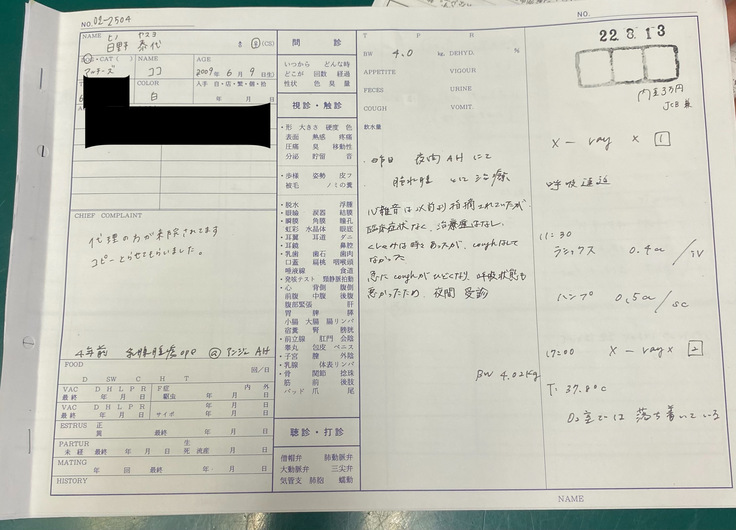 NO. 02-2504
NO.
22.8.13
NAME ヒノ ヤスヨ
日野 泰代
(CS)
DOG・CAT( )
マルチーズ
NAME
ココ
AGE
2009年 6月 9日(生)
COLOR
白
入手 自・店・繁・個・拾
年 月 日
CHIEF COMPLAINT
代理の方が来院されてます
コピーとらせてもらいました。
4年前 乳腺腫瘍ope @アンジェAH
FOOD
回/日
D SW C H T
VAC D H L P R F症 内 外
最終 年 月 日 駆虫 年 月 日
VAC D H L P R 年 月 日
最終 年 月 日 サイボ 年 月 日
ESTRUS 正
異 最終 年 月 日
PARTUR 生
未 経 最終 年 月 日 死 流産 年 月 日
MATING
年 回 最終 年 月 日
HISTORY
問 診
いつから どんな時
どこが 回数 経過
性状 色 臭 量
視診・触診
・形 大きさ 硬度 色
表面 熱感 疼痛
圧痛 臭 移動性
分泌 貯留 音
・歩様 姿勢 皮フ
被毛 ノミの糞
・脱水 浮腫
・眼瞼 涙器 結膜
瞬膜 角膜 瞳孔
虹彩 水晶体 眼底
・耳翼 耳道 ダニ
・耳鏡 鼻腔
・乳歯 歯石 歯肉
口蓋 扁桃 咽喉頭
唾液線 食道
・発咳テスト 頸静脈拍動
・心 背側 腹側
前腹 中腹 後腹
腹部緊張 肝
胃 脾 膵
小腸 大腸 腸リンパ
宿糞 腎 膀胱
・前立線 肛門 会陰
睾丸 包皮 ペニス
・子宮 膣 外陰
乳線 体表リンパ
・骨 関節 捻珠
筋 前 後肢
パッド 爪 尾
聴診・打診
僧帽弁 肺動脈弁
大動脈弁 三尖弁
気管支 肺胞 蠕動
T P R
BW 4.0 kg. DEHYD. %
APPETITE VIGOUR
FECES URINE
COUGH VOMIT.
飲水量
昨日 夜間AHにて
肺水腫 にて治療
心雑音は以前より指摘されていたが
臨床症状なく、治療歴はなし。
くしゃみは時々あったが、coughはして
なかった
急にcoughがひどくなり 呼吸状態も
悪かったため、夜間 受診
BW 4.02kg
内金3万円
JCB
X-ray × 1
呼吸速迫
11:30
ラシックス 0.4cc/IV
ハンプ 0.5cc/sc
17:00 X-ray × 2
T: 37.8℃
O₂室では 落ち着いている
NAME